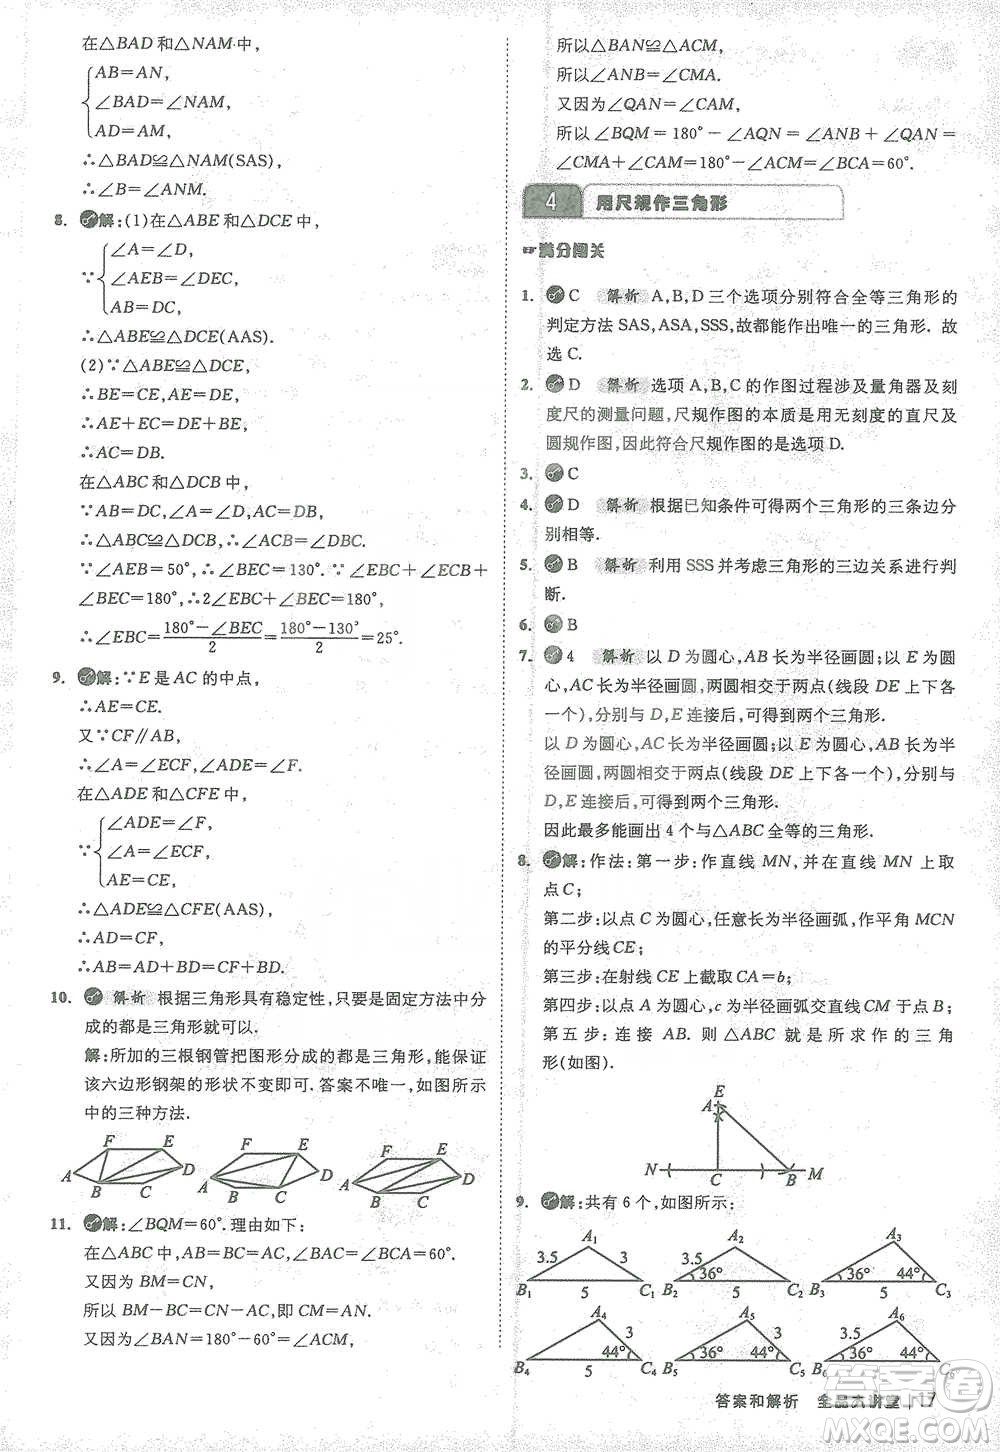 在△BAD和△NAM中,
AB=AN,
∠BAD=∠NAM,
AD=AM,
∴△BAD≌△NAM(SAS).
∴∠B=∠ANM.
8. 解:(1)在△ABE和△DCE中,
∠A=∠D,
∵ ∠AEB=∠DEC,
AB=DC,
∴△ABE≌△DCE(AAS).
(2)∵△ABE≌△DCE,
∴BE=CE,AE=DE,
∴AE+EC=DE+BE,
∴AC=DB.
在△ABC和△DCB中,
∵AB=DC,∠A=∠D,AC=DB,
∴△ABC≌△DCB,∴∠ACB=∠DBC.
∵∠AEB=50°,∴∠BEC=130°.∵∠EBC+∠ECB+
∠BEC=180°,∴2∠EBC+∠BEC=180°,
∴∠EBC=(180°-∠BEC)/2=(180°-130°)/2=25°.
9. 解:∵E是AC的中点,
∴AE=CE.
又∵CF∥AB,
∴∠A=∠ECF,∠ADE=∠F.
在△ADE和△CFE中,
∠ADE=∠F,
∵ ∠A=∠ECF,
AE=CE,
∴△ADE≌△CFE(AAS),
∴AD=CF,
∴AB=AD+BD=CF+BD.
10. 解析 根据三角形具有稳定性,只要是固定方法中分
成的都是三角形就可以.
解:所加的三根钢管把图形分成的都是三角形,能保证
该六边形钢架的形状不变即可.答案不唯一,如图所示
中的三种方法.
F E A D B C
F E A D B C
F E A D B C
11. 解:∠BQM=60°.理由如下:
在△ABC中,AB=BC=AC,∠BAC=∠BCA=60°.
又因为BM=CN,
所以BM-BC=CN-AC,即CM=AN.
又因为∠BAN=180°-60°=120°=∠ACM,
所以△BAN≌△ACM,
所以∠ANB=∠CMA.
又因为∠QAN=∠CAM,
所以∠BQM=180°-∠AQN=∠ANB+∠QAN=
∠CMA+∠CAM=180°-∠ACM=∠BCA=60°.
4 用尺规作三角形
满分闯关
1. C 解析 A,B,D三个选项分别符合全等三角形的
判定方法SAS,ASA,SSS,故都能作出唯一的三角形.故
选C.
2. D 解析 选项A,B,C的作图过程涉及量角器及刻
度尺的测量问题,尺规作图的本质是用无刻度的直尺及
圆规作图,因此符合尺规作图的是选项D.
3. C
4. D 解析 根据已知条件可得两个三角形的三条边分
别相等.
5. B 解析 利用SSS并考虑三角形的三边关系进行判
断.
6. B
7. 4 解析 以D为圆心,AB长为半径画圆;以E为圆
心,AC长为半径画圆,两圆相交于两点(线段DE上下各
一个),分别与D,E连接后,可得到两个三角形.
以D为圆心,AC长为半径画圆;以E为圆心,AB长为半
径画圆,两圆相交于两点(线段DE上下各一个),分别与
D,E连接后,可得到两个三角形.
因此最多能画出4个与△ABC全等的三角形.
8. 解:作法:第一步:作直线MN,并在直线MN上取一
点C;
第二步:以点C为圆心,任意长为半径画弧,作平角MCN
的平分线CE;
第三步:在射线CE上截取CA=b;
第四步:以点A为圆心,c为半径画弧交直线CM于点B;
第五步:连接AB.则△ABC就是所求作的三角
形(如图).
E
A
N C B M
9. 解:共有6个,如图所示:
A₁ 3.5 3 B₁ 5 C₁
A₂ 3.5 36° B₂ 5 C₂
A₃ 36° 44° B₃ 5 C₃
A₄ 3 44° B₄ 5 C₄
A₅ 3 36° 44° B₅ C₅
A₆ 3.5 36° 44° B₆ C₆
答案和解析 全品大讲堂 17
答案圈
MXQE.COM